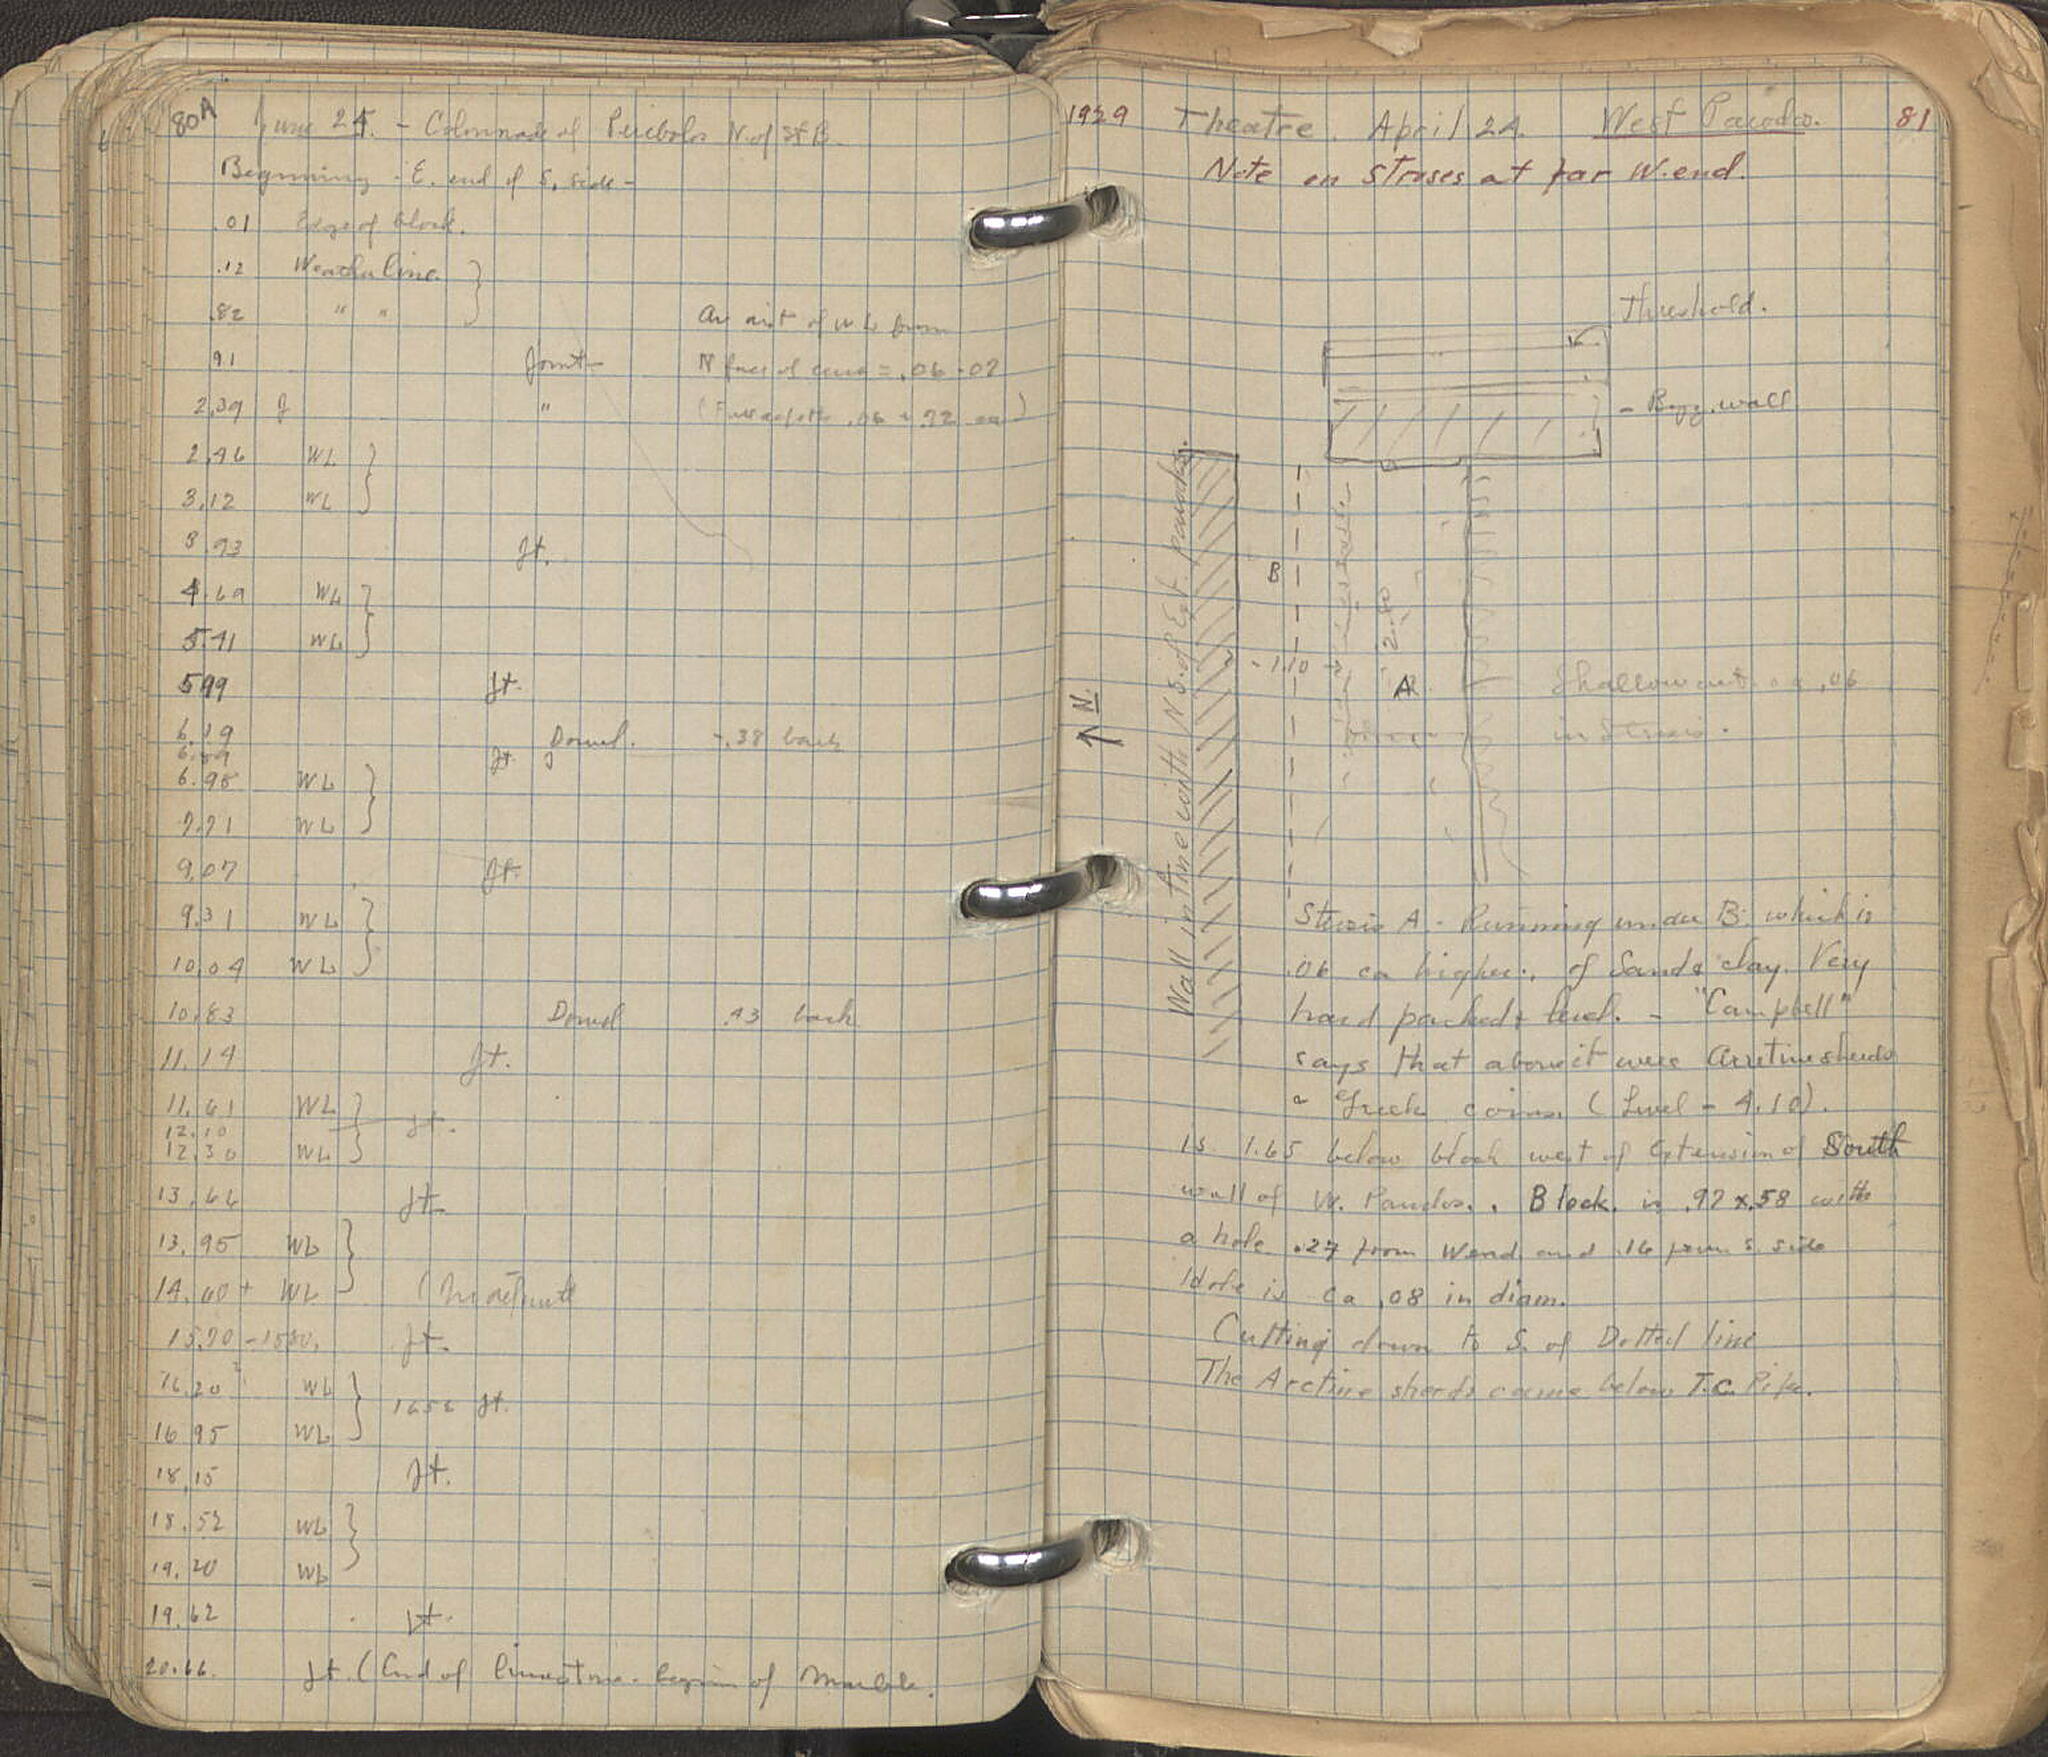 80A June 24. - Colonnade of Peribolos N. of St B.
Beginning - E. end of S. side -
.01 Edge of block.
.12 Weather line.
.82 " "
Av. dist of WL from
.91 Joint
N face of = .06-.07
2.39 J "
2.46 WL
3.12 WL
3.93 Jt.
4.69 WL
5.41 WL
5.99 Jt.
6.19 Dowel. -.38 back
6.59 Jt
6.98 WL
7.71 WL
9.07 Jt.
9.31 WL
10.04 WL
10.83 Dowel .43 back
11.14 Jt.
11.61 WL
12.10 Jt.
12.30 WL
13.66 Jt.
13.95 WL
14.60+ WL (Indefinite
15.20-1530. Jt.
16.20 WL
1656 Jt.
16.95 WL
18.15 Jt.
18.52 WL
19.20 WL
19.62 Jt.
20.66. Jt. (End of limestone - begin of Marble.
1929 Theatre. April 24. West Parodos. 81
Note on Stroses at far W. end.
Threshold.
- Byz. wall
Wall in line with N.S. of Ext. Parodos.
B
2.40
- 1.10 →
A
Shallow cut ca .06
in Strosis.
N.
Strosis A - Running under B. which is
.06 ca higher, of Sand & clay. Very
hard packed & level. - "Campbell"
says that above it were Arretine sherds
& Greek coins. (Level - 4.10).
Is 1.65 below block west of Extension of South
wall of W. Parodos. Block is .97 x .58 with
a hole .27 from W end and .16 from S. side
Hole is ca .08 in diam.
Cutting down to S. of Dotted line
The Arretine sherds came below T.C. Pipe.